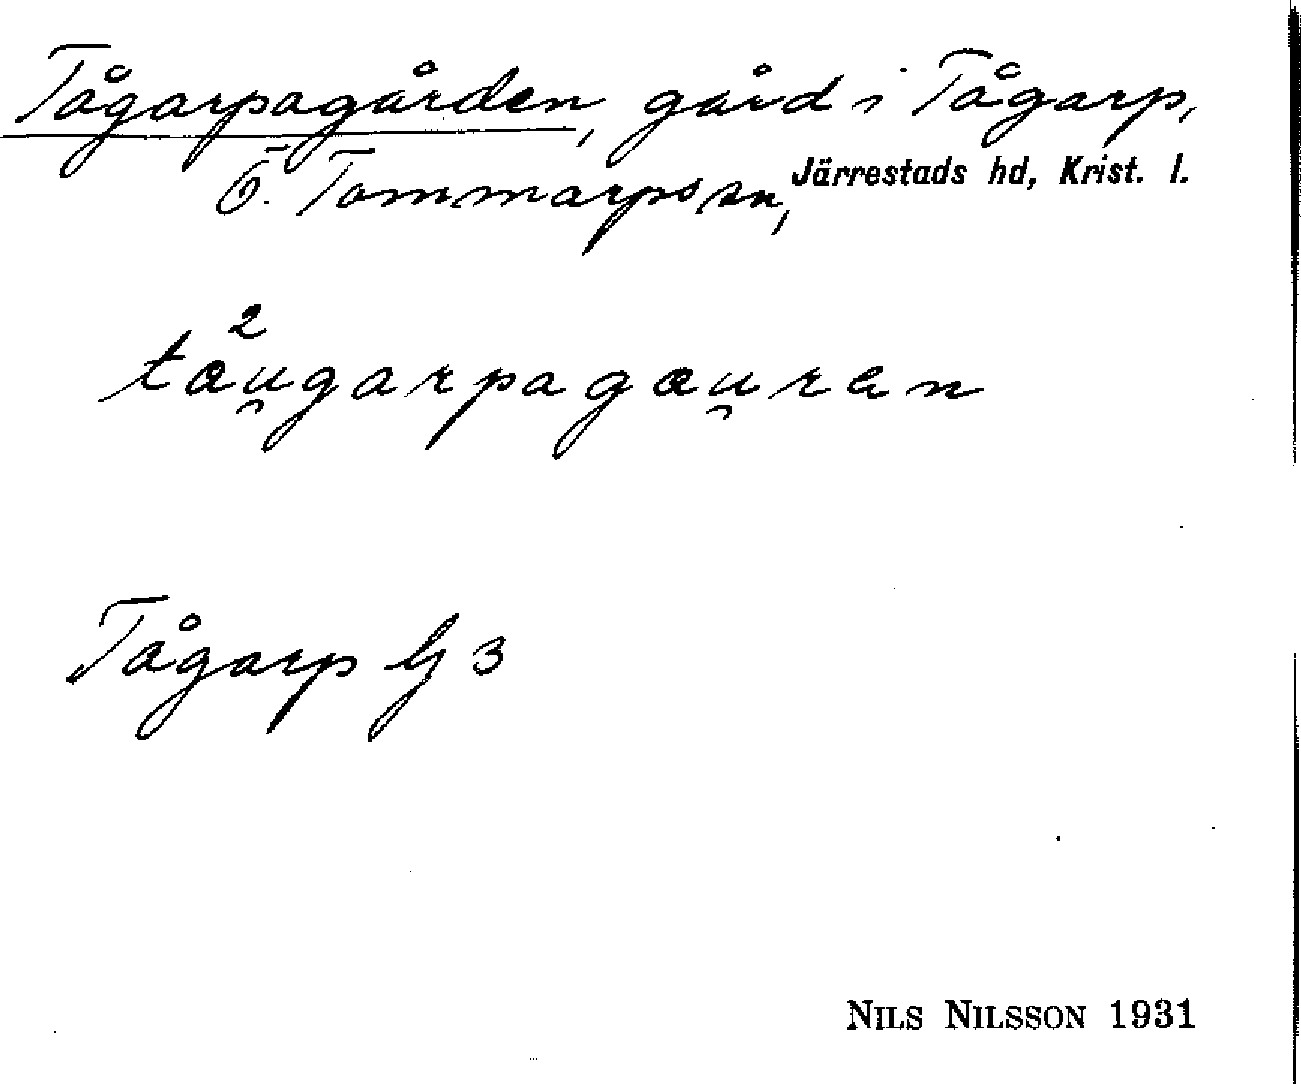 Tågarpagården, gård i Tågarp,
Ö. Tommarps sn, Järrestads hd, Krist. l.
2
tæu̯garpagæu̯ren
Tågarp G 3
NILS NILSSON 1931